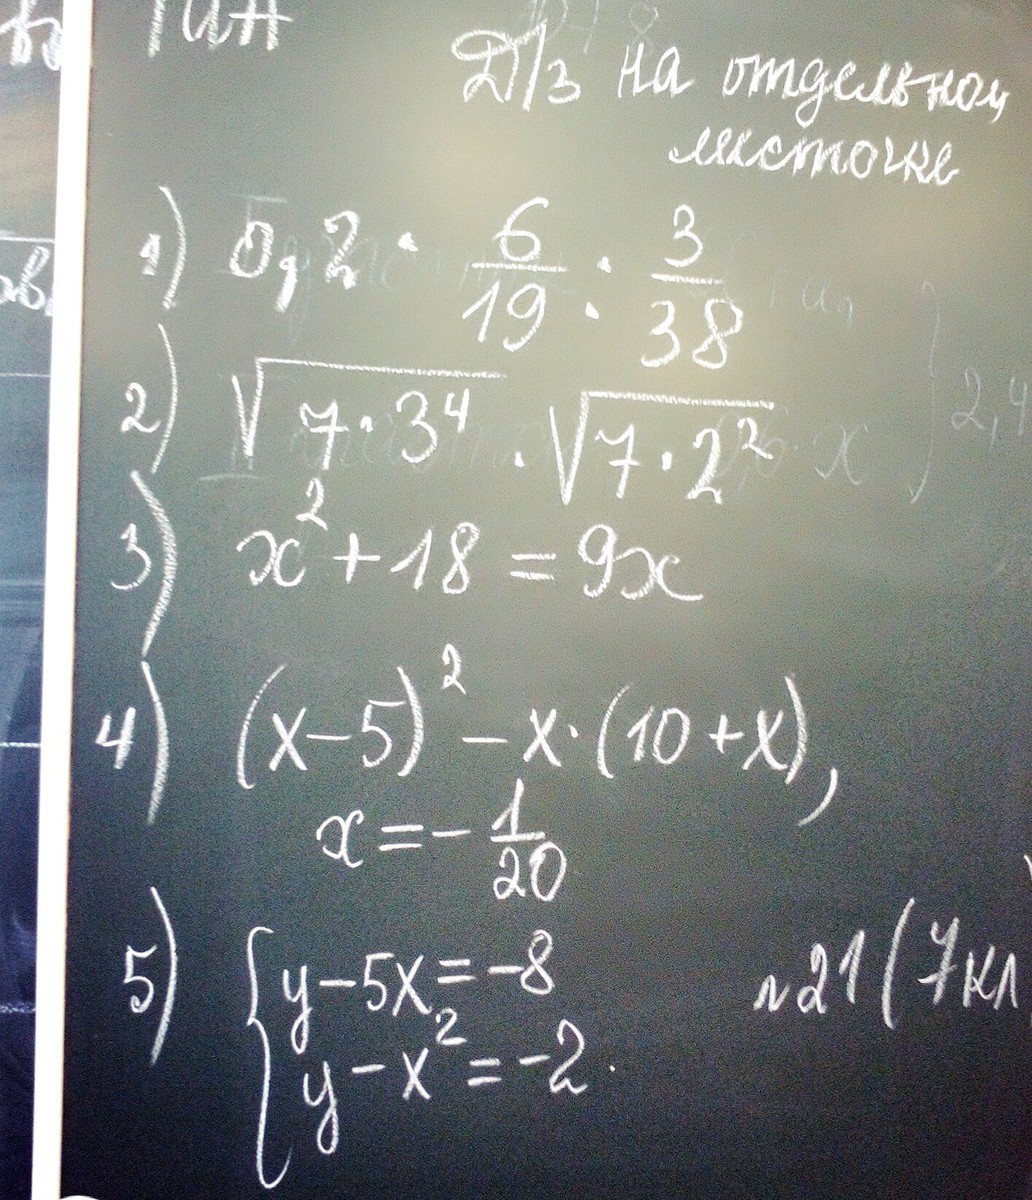 Д/з на отдельном
листочке
1) 0,2 · 6/19 : 3/38
2) √(7·3⁴) · √(7·2²)
3) x² + 18 = 9x
4) (x−5)² − x·(10+x),
x = −1/20
5) { y−5x = −8
y−x² = −2.
№21 (7кл